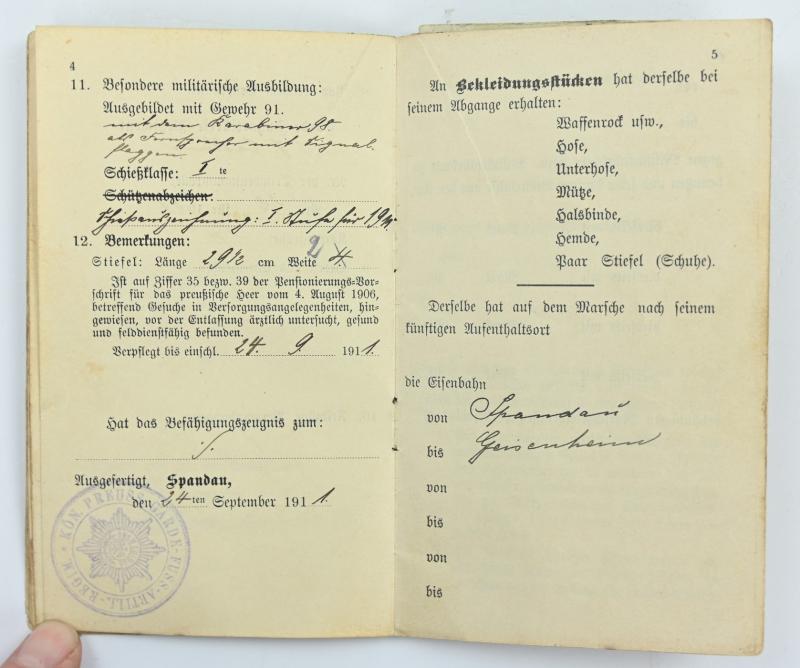 4
11. Besondere militärische Ausbildung:
Ausgebildet mit Gewehr 91.
mit dem Karabiner 98.
als Fernsprecher mit Signal-
flaggen
Schießklasse: I te
Schützenabzeichen:
Schießauszeichnung: I. Stufe für 1911.
12. Bemerkungen:
Stiefel: Länge 29½ cm Weite 4 2
Ist auf Ziffer 35 bezw. 39 der Pensionierungs-Vor-
schrift für das preußische Heer vom 4. August 1906,
betreffend Gesuche in Versorgungsangelegenheiten, hin-
gewiesen, vor der Entlassung ärztlich untersucht, gesund
und felddienstfähig befunden.
Verpflegt bis einschl. 24. 9. 1911.
Hat das Befähigungszeugnis zum:
Ausgefertigt, Spandau,
den 24ten September 1911.
KÖN. PREUSS. GARDE-FUSS-ARTILL.-REGIM.
5
An Bekleidungsstücken hat derselbe bei
seinem Abgange erhalten:
Waffenrock usw.,
Hose,
Unterhose,
Mütze,
Halsbinde,
Hemde,
Paar Stiefel (Schuhe).
Derselbe hat auf dem Marsche nach seinem
künftigen Aufenthaltsort
die Eisenbahn
von Spandau
bis Geisenheim
von
bis
von
bis